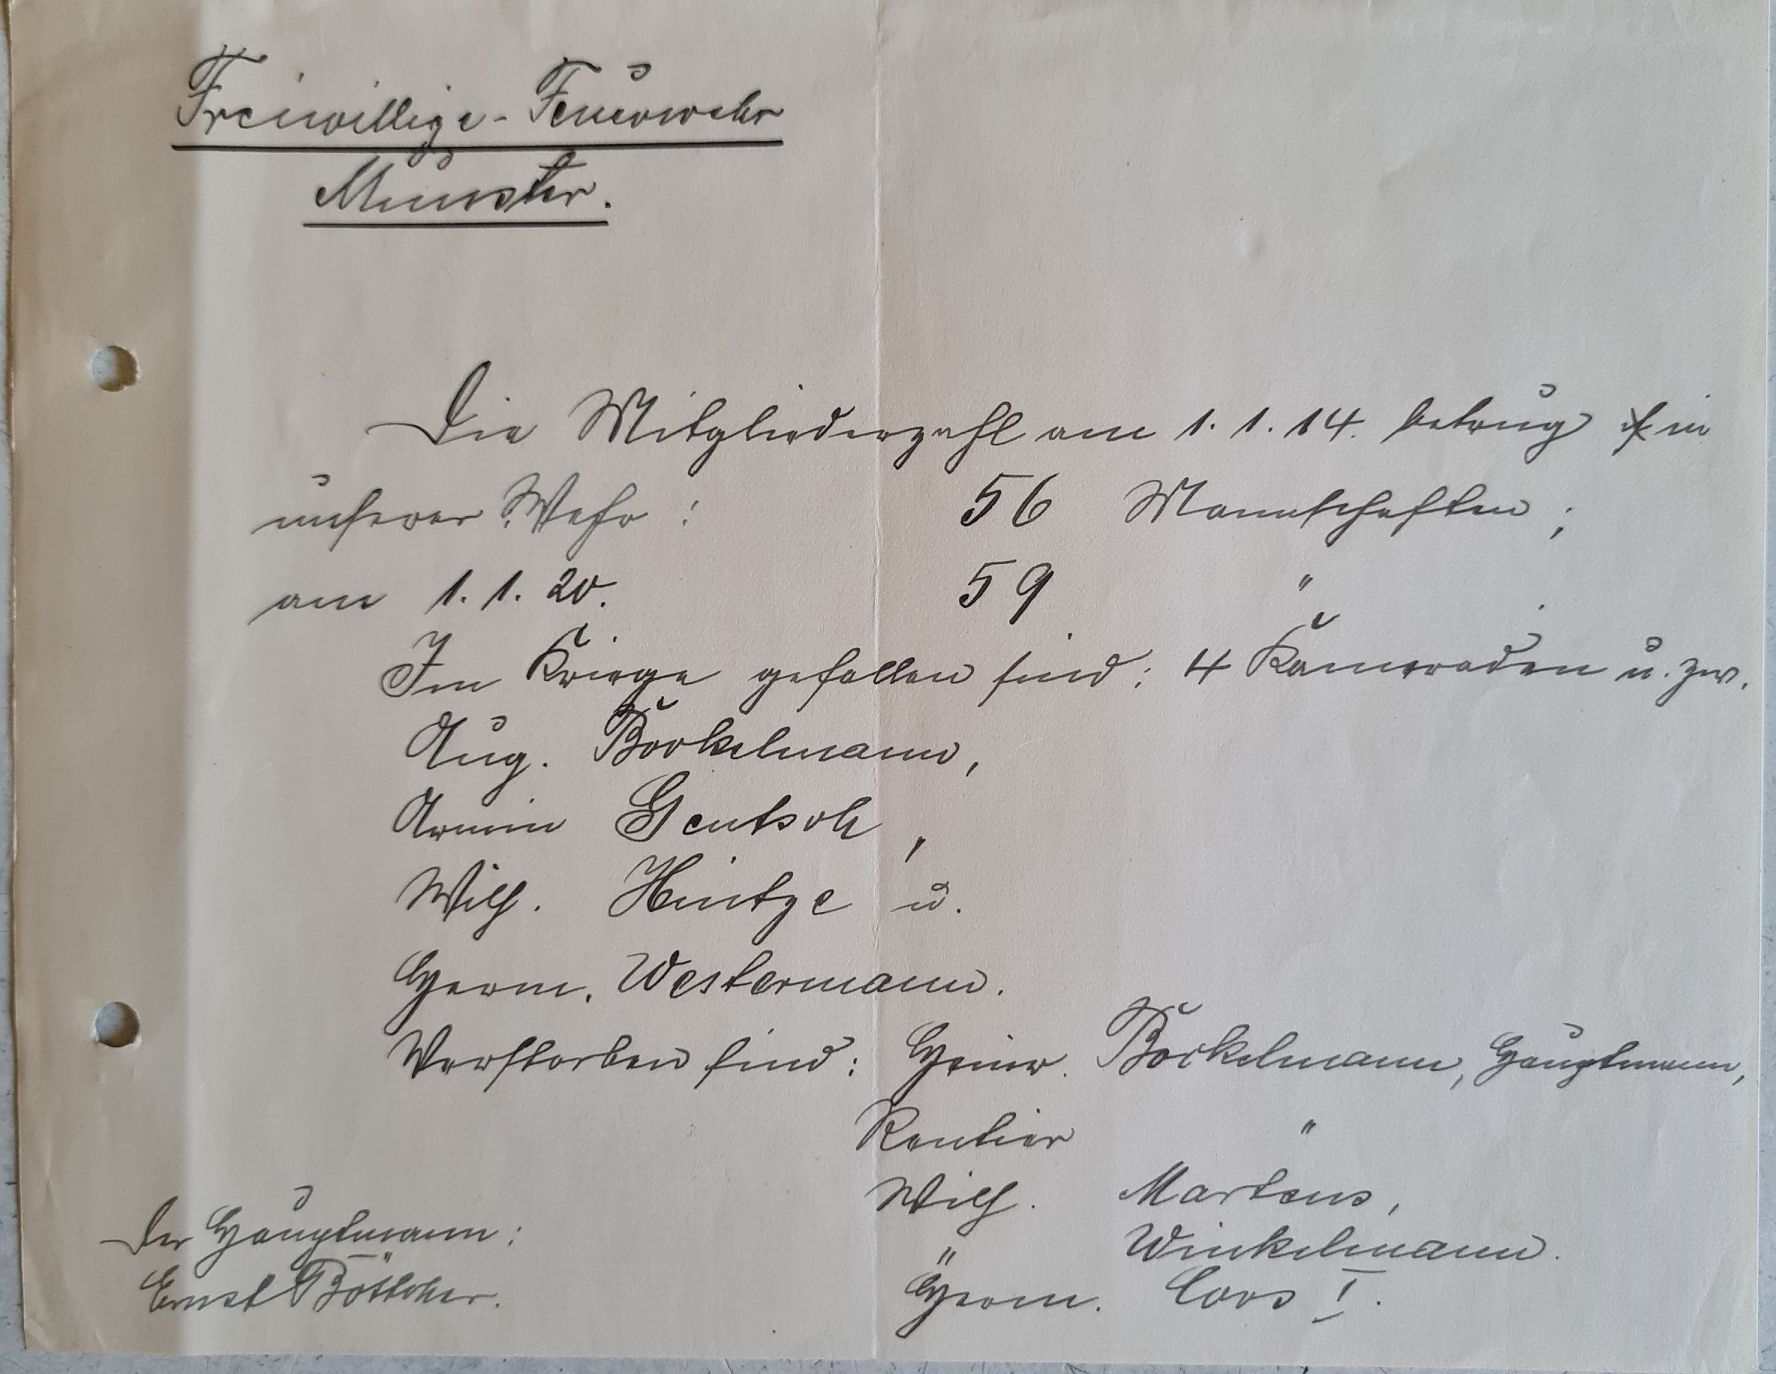 Freiwillige-Feuerwehr
Munster.
Die Mitgliederzahl am 1. 1. 14. betrug in
unserer Wehr : 56 Mannschaften ;
am 1. 1. 20. 59 "
Im Kriege gefallen sind: 4 Kameraden u. zw.
Aug. Bockelmann,
Armin Gentsch,
Wilh. Hintze u.
Herm. Westermann.
Verstorben sind: Heinr. Bockelmann, Hauptmann,
Rentier "
Wilh. Martens,
" Winkelmann.
Der Hauptmann:
Ernst Böttcher.
Herm. Coors I.